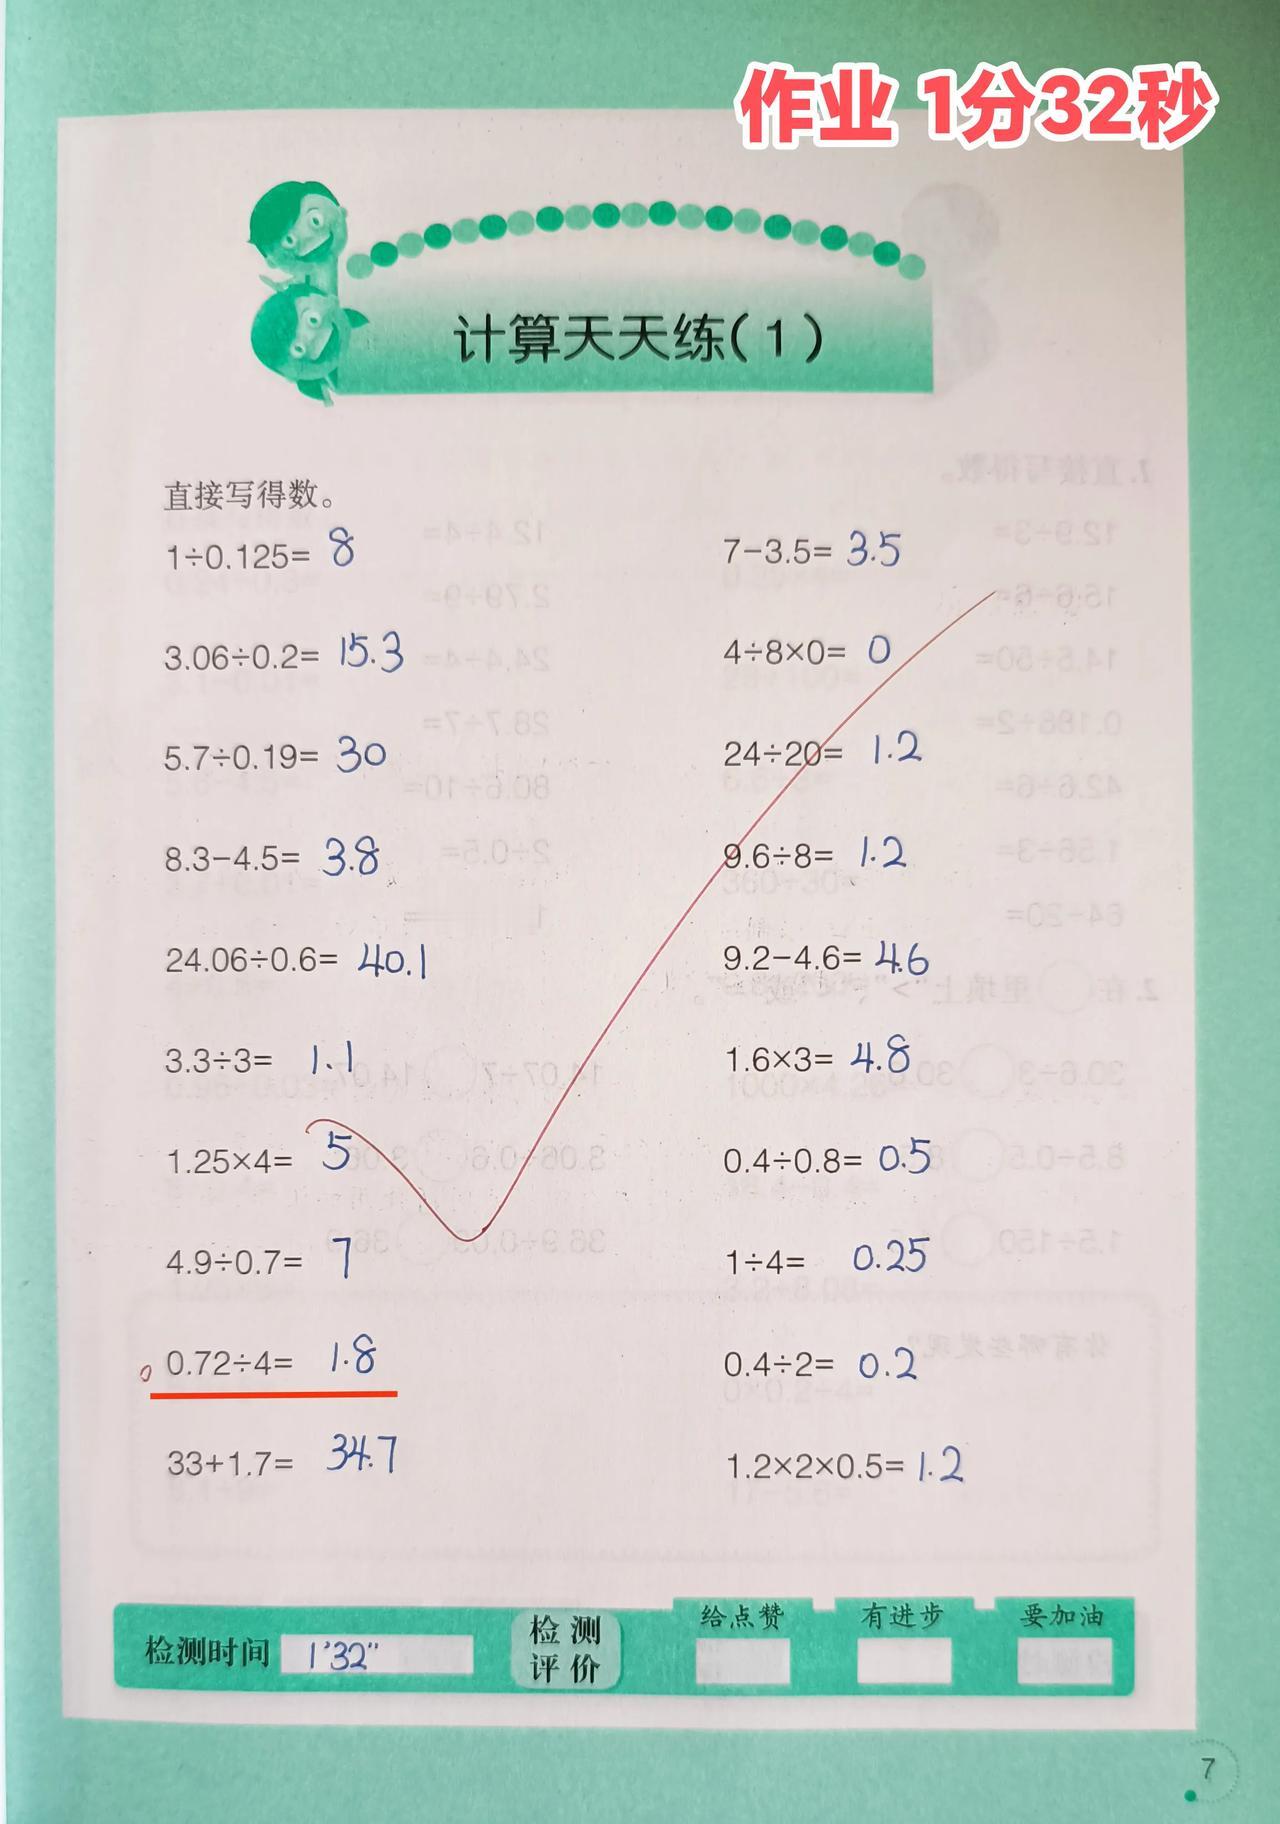 作业 1分32秒
计算天天练(1)
直接写得数。
1÷0.125= 8
7-3.5= 3.5
3.06÷0.2= 15.3
4÷8×0= 0
5.7÷0.19= 30
24÷20= 1.2
8.3-4.5= 3.8
9.6÷8= 1.2
24.06÷0.6= 40.1
9.2-4.6= 4.6
3.3÷3= 1.1
1.6×3= 4.8
1.25×4= 5
0.4÷0.8= 0.5
4.9÷0.7= 7
1÷4= 0.25
0.72÷4= 1.8
0.4÷2= 0.2
33+1.7= 34.7
1.2×2×0.5= 1.2
检测时间 1'32"
检测评价
给点赞 有进步 要加油
7